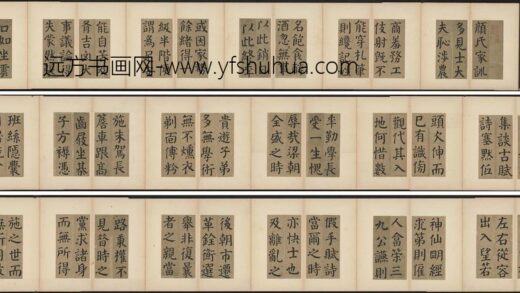 顏氏家訓
多見士大
夫恥涉農
商羞務工
伎射既不
能穿札筆
則纔記
名飽食
酒忽無
以此銷
以此終
或因家
餘緒得
級半階
謂為足
能自苦
事議論
失蒙然
口如坐雲
集談古賦
詩塞默低
頭欠伸而
已有識旁
觀代其入
地何惜數
年勤學長
受一生愧
辱哉梁朝
全盛之時
貴遊子弟
多無學術
無不燻衣
剃面傅粉
施朱駕長
簷車跟高
齒屐坐棊
子方褥憑
班絲隱囊
左右從容
出入望若
神仙明經
求第則顧
人答策三
九公讌則
假手賦詩
當爾之時
亦快士也
及離亂之
後朝市遷
革銓衡選
舉非復曩
者之親當
路秉權不
見昔時之
黨求諸身
而無所得
施之世而
遠方书画网-www.yfshuhua.com